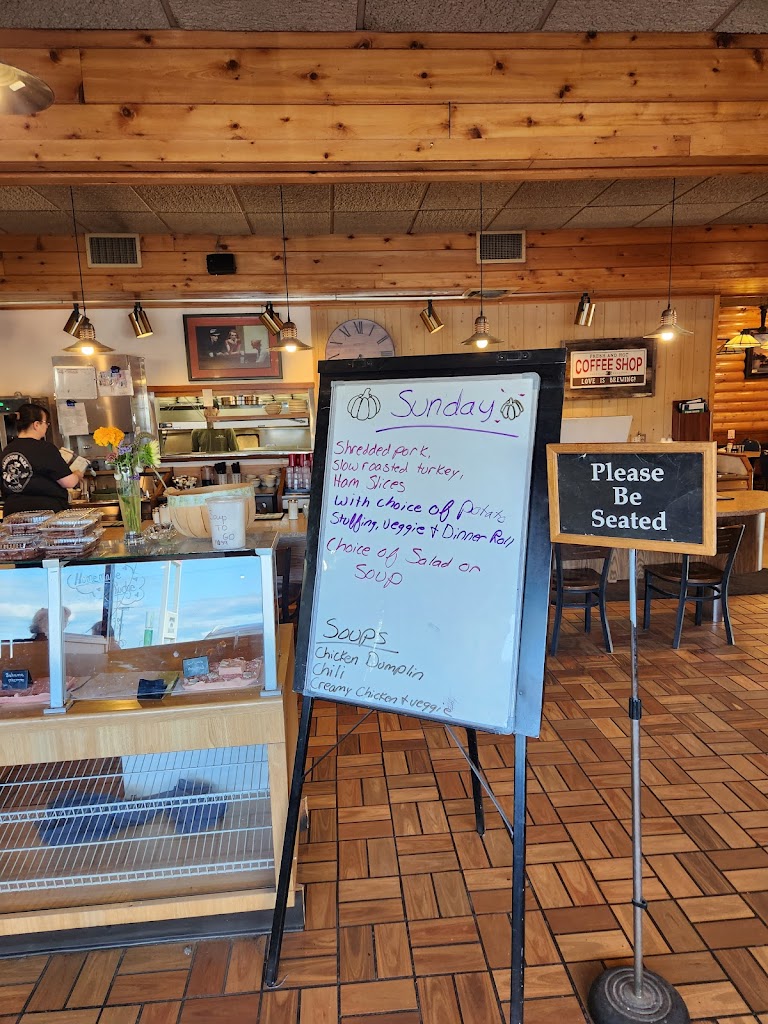 FRESH AND HOT
COFFEE SHOP
LOVE IS BREWING!
Sunday
Shredded pork,
Slow roasted turkey,
Ham Slices
with choice of Potato
Stuffing, veggie + Dinner Roll
Choice of Salad or
Soup
SOUPS
Chicken Dumplin
Chili
Creamy Chicken + veggie
Please
Be
Seated
SOUP
TO
GO
Homemade
Fudge